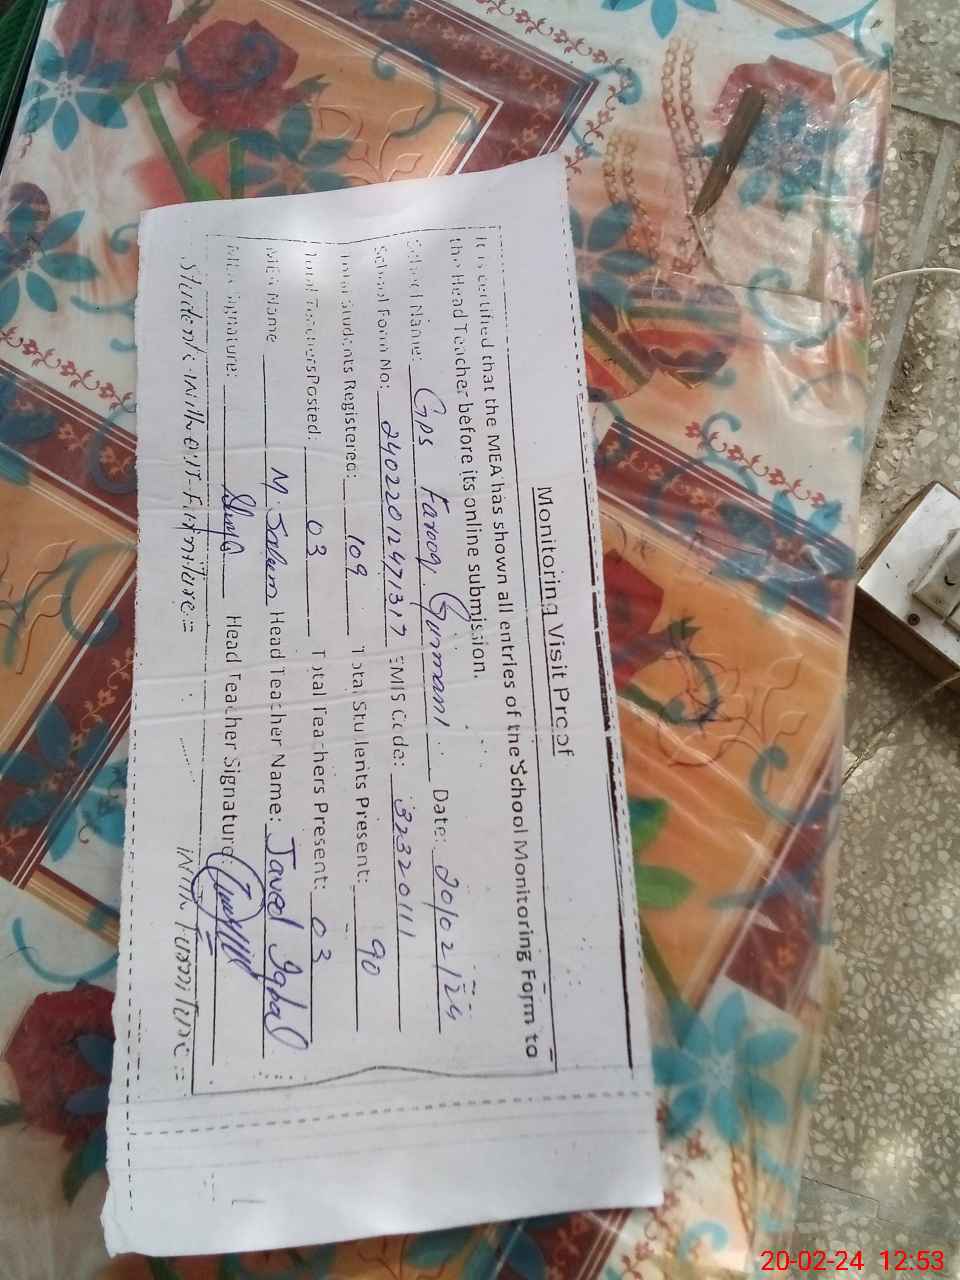 Monitoring Visit Proof
It is certified that the MEA has shown all entries of the School Monitoring Form to
the Head Teacher before its online submission.
School Name: Gps Farooq Gurmani Date: 20/02/24
School Form No: EMIS Code: 32320111
Total Students Registered: 109 Total Students Present: 90
Total Teachers Posted: 03 Total Teachers Present: 03
MEA Name M. Salem Head Teacher Name: Javed Iqbal
MEA Signature: Head Teacher Signature:
Students With out Furniture:= With Furniture:=
20-02-24 12:53